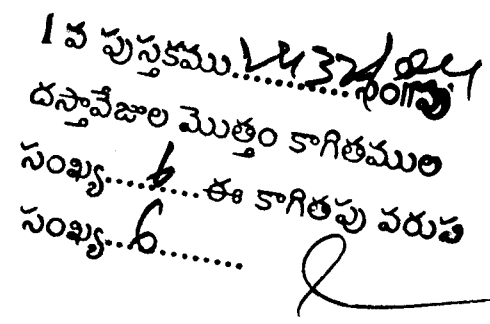 1 వ పుస్తకము............సం॥పు
దస్తావేజుల మొత్తం కాగితముల
సంఖ్య....6....ఈ కాగితపు వరుస
సంఖ్య...6........